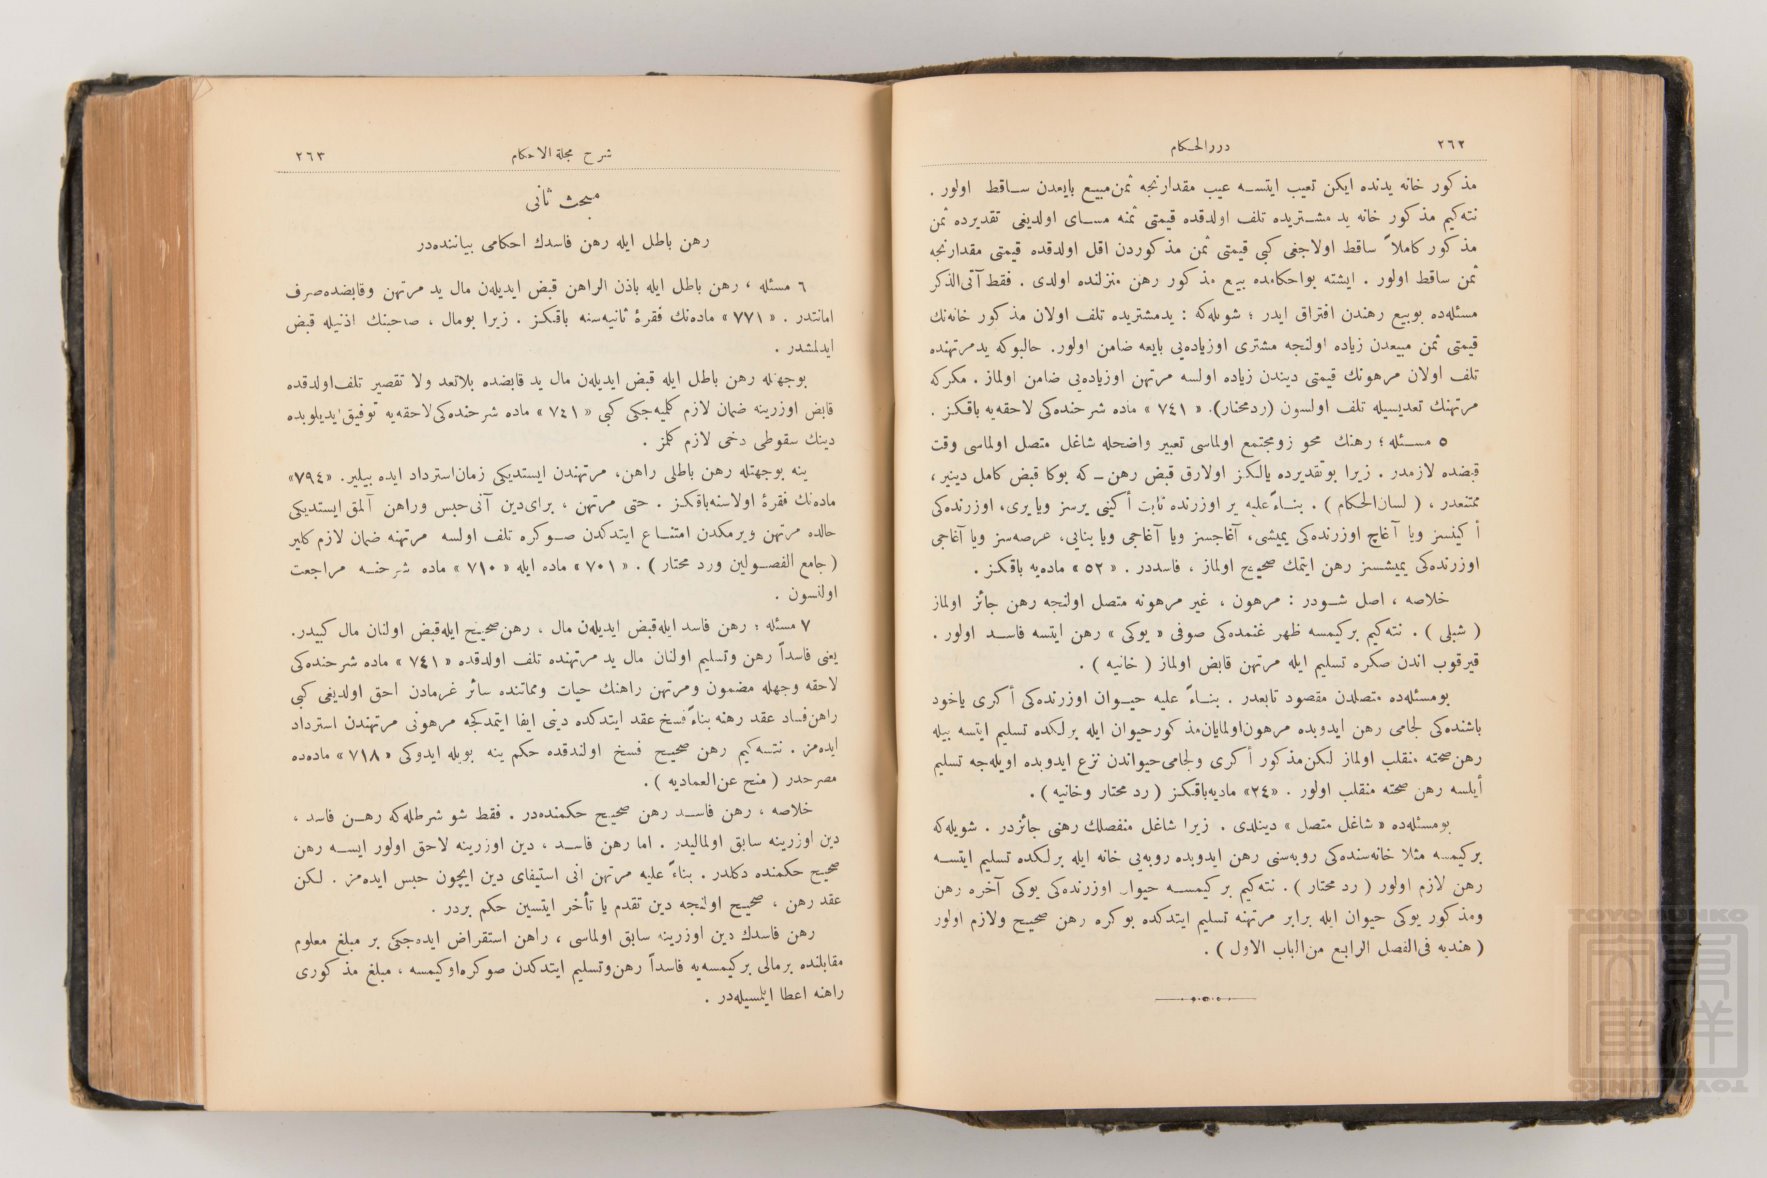 ٢٦٢
درر الحكام
مذكور خانه يدنده ايكن تعيب ايتسه عيب مقدارنجه ثمن مبيع بايعدن ساقط اولور .
نته كيم مذكور خانه يد مشتريده تلف اولدقده قيمتى ثمنه مساى اولديغى تقديرده ثمن
مذكور كاملاً ساقط اولاجغى كبى قيمتى ثمن مذكوردن اقل اولدقده قيمتى مقدارنجه
ثمن ساقط اولور . ايشته بو احكامده بيع مذكور رهن منزلنده اولدى . فقط آتى الذكر
مسئله ده بو بيع رهندن افتراق ايدر ؛ شويله كه : يد مشتريده تلف اولان مذكور خانه نك
قيمتى ثمن مبيعدن زياده اولنجه مشترى او زياده يى بايعه ضامن اولور . حالبوكه يد مرتهنده
تلف اولان مرهونك قيمتى ديندن زياده اولسه مرتهن او زياده يى ضامن اولماز . مكركه
مرتهنك تعديسيله تلف اولسون (رد محتار). « ٧٤١ » ماده شرحنده كى لاحقه يه باقكز .
٥ مسئله ؛ رهنك محوزو مجتمع اولماسى تعبير واضحله شاغل متصل اولماسى وقت
قبضده لازمدر . زيرا بو تقديرده يالكز اولارق قبض رهن ــ كه بوكا قبض كامل دينير ،
ممتنعدر ، ( لسان الحكام ) . بناءً عليه ير اوزرنده ثابت أكينى يرسز ويا يرى ، اوزرنده كى
أكينسز ويا آغاچ اوزرنده كى يميشى ، آغاجسز ويا آغاجى ويا بنايى ، عرصه سز ويا آغاجى
اوزرنده كى يميشسز رهن ايتمك صحيح اولماز ، فاسددر . « ٥٢ » ماده يه باقكز .
خلاصه ، اصل شودر : مرهون ، غير مرهونه متصل اولنجه رهن جائز اولماز
( شبلى ) . نته كيم بر كيمسه ظهر غنمده كى صوفى « يوكى » رهن ايتسه فاسد اولور .
قيرقوب اندن صكره تسليم ايله مرتهن قابض اولماز ( خانيه ) .
بو مسئله ده متصلدن مقصود تابعدر . بناءً عليه حيوان اوزرنده كى أكرى ياخود
باشنده كى لجامى رهن ايدوبده مرهون اولمايان مذكور حيوان ايله برلكده تسليم ايتسه بيله
رهن صحته منقلب اولماز لكن مذكور أكرى ولجامى حيواندن نزع ايدوبده اويله جه تسليم
أيلسه رهن صحته منقلب اولور . «٢٤» ماديه باقكز ( رد محتار وخانيه ) .
بو مسئله ده « شاغل متصل » دينلدى . زيرا شاغل منفصلك رهنى جائزدر . شويله كه
بر كيمسه مثلا خانه سنده كى روبه سنى رهن ايدوبده روبه يى خانه ايله برلكده تسليم ايتسه
رهن لازم اولور ( رد محتار ) . نته كيم بر كيمسه حيوان اوزرنده كى يوكى آخره رهن
ومذكور يوكى حيوان ايله برابر مرتهنه تسليم ايتدكده بو كره رهن صحيح ولازم اولور
( هنديه فى الفصل الرابع من الباب الاول ) .
شرح مجلة الاحكام
٢٦٣
مبحث ثانى
رهن باطل ايله رهن فاسدك احكامى بياننده در
٦ مسئله ، رهن باطل ايله باذن الراهن قبض ايديلن مال يد مرتهن وقابضده صرف
امانتدر . « ٧٧١ » ماده نك فقرهٔ ثانيه سنه باقكز . زيرا بو مال ، صاحبنك اذنيله قبض
ايدلمشدر .
بوجهله رهن باطل ايله قبض ايديلن مال يد قابضده بلا تعد ولا تقصير تلف اولدقده
قابض اوزرينه ضمان لازم كلميه جكى كبى « ٧٤١ » ماده شرحنده كى لاحقه يه توفيق ايديلوبده
دينك سقوطى دخى لازم كلمز .
ينه بوجهتله رهن باطلى راهن ، مرتهندن ايستديكى زمان استرداد ايده بيلير . «٧٩٤»
ماده نك فقرهٔ اولاسنه باقكز . حتى مرتهن ، براى دين آنى حبس وراهن آلمق ايستديكى
حالده مرتهن ويرمكدن امتناع ايتدكدن صوكره تلف اولسه مرتهنه ضمان لازم كلير
( جامع الفصولين ورد محتار ) . « ٧٠١ » ماده ايله « ٧١٠ » ماده شرحنه مراجعت
اولنسون .
٧ مسئله ؛ رهن فاسد ايله قبض ايديلن مال ، رهن صحيح ايله قبض اولنان مال كبيدر .
يعنى فاسداً رهن وتسليم اولنان مال يد مرتهنده تلف اولدقده « ٧٤١ » ماده شرحنده كى
لاحقه وجهله مضمون ومرتهن راهنك حيات ومماتنده سائر غرمادن احق اولديغى كبى
راهن فساد عقد رهنه بناءً فسخ عقد ايتدكده دينى ايفا ايتمدكجه مرهونى مرتهندن استرداد
ايده مز . نته كيم رهن صحيح فسخ اولندقده حكم ينه بويله ايدوكى « ٧١٨ » ماده ده
مصرحدر ( منح عن العماديه ) .
خلاصه ، رهن فاسد رهن صحيح حكمنده در . فقط شو شرطله كه رهن فاسد ،
دين اوزرينه سابق اولماليدر . اما رهن فاسد ، دين اوزرينه لاحق اولور ايسه رهن
صحيح حكمنده دكلدر . بناءً عليه مرتهن انى استيفاى دين ايچون حبس ايده مز . لكن
عقد رهن ، صحيح اولنجه دين تقدم يا تأخر ايتسين حكم بردر .
رهن فاسدك دين اوزرينه سابق اولماسى ، راهن استقراض ايده جكى بر مبلغ معلوم
مقابلنده بر مالى بر كيمسه يه فاسداً رهن وتسليم ايتدكدن صوكره او كيمسه ، مبلغ مذكورى
راهنه اعطا ايلمسيله در .
TOYO BUNKO